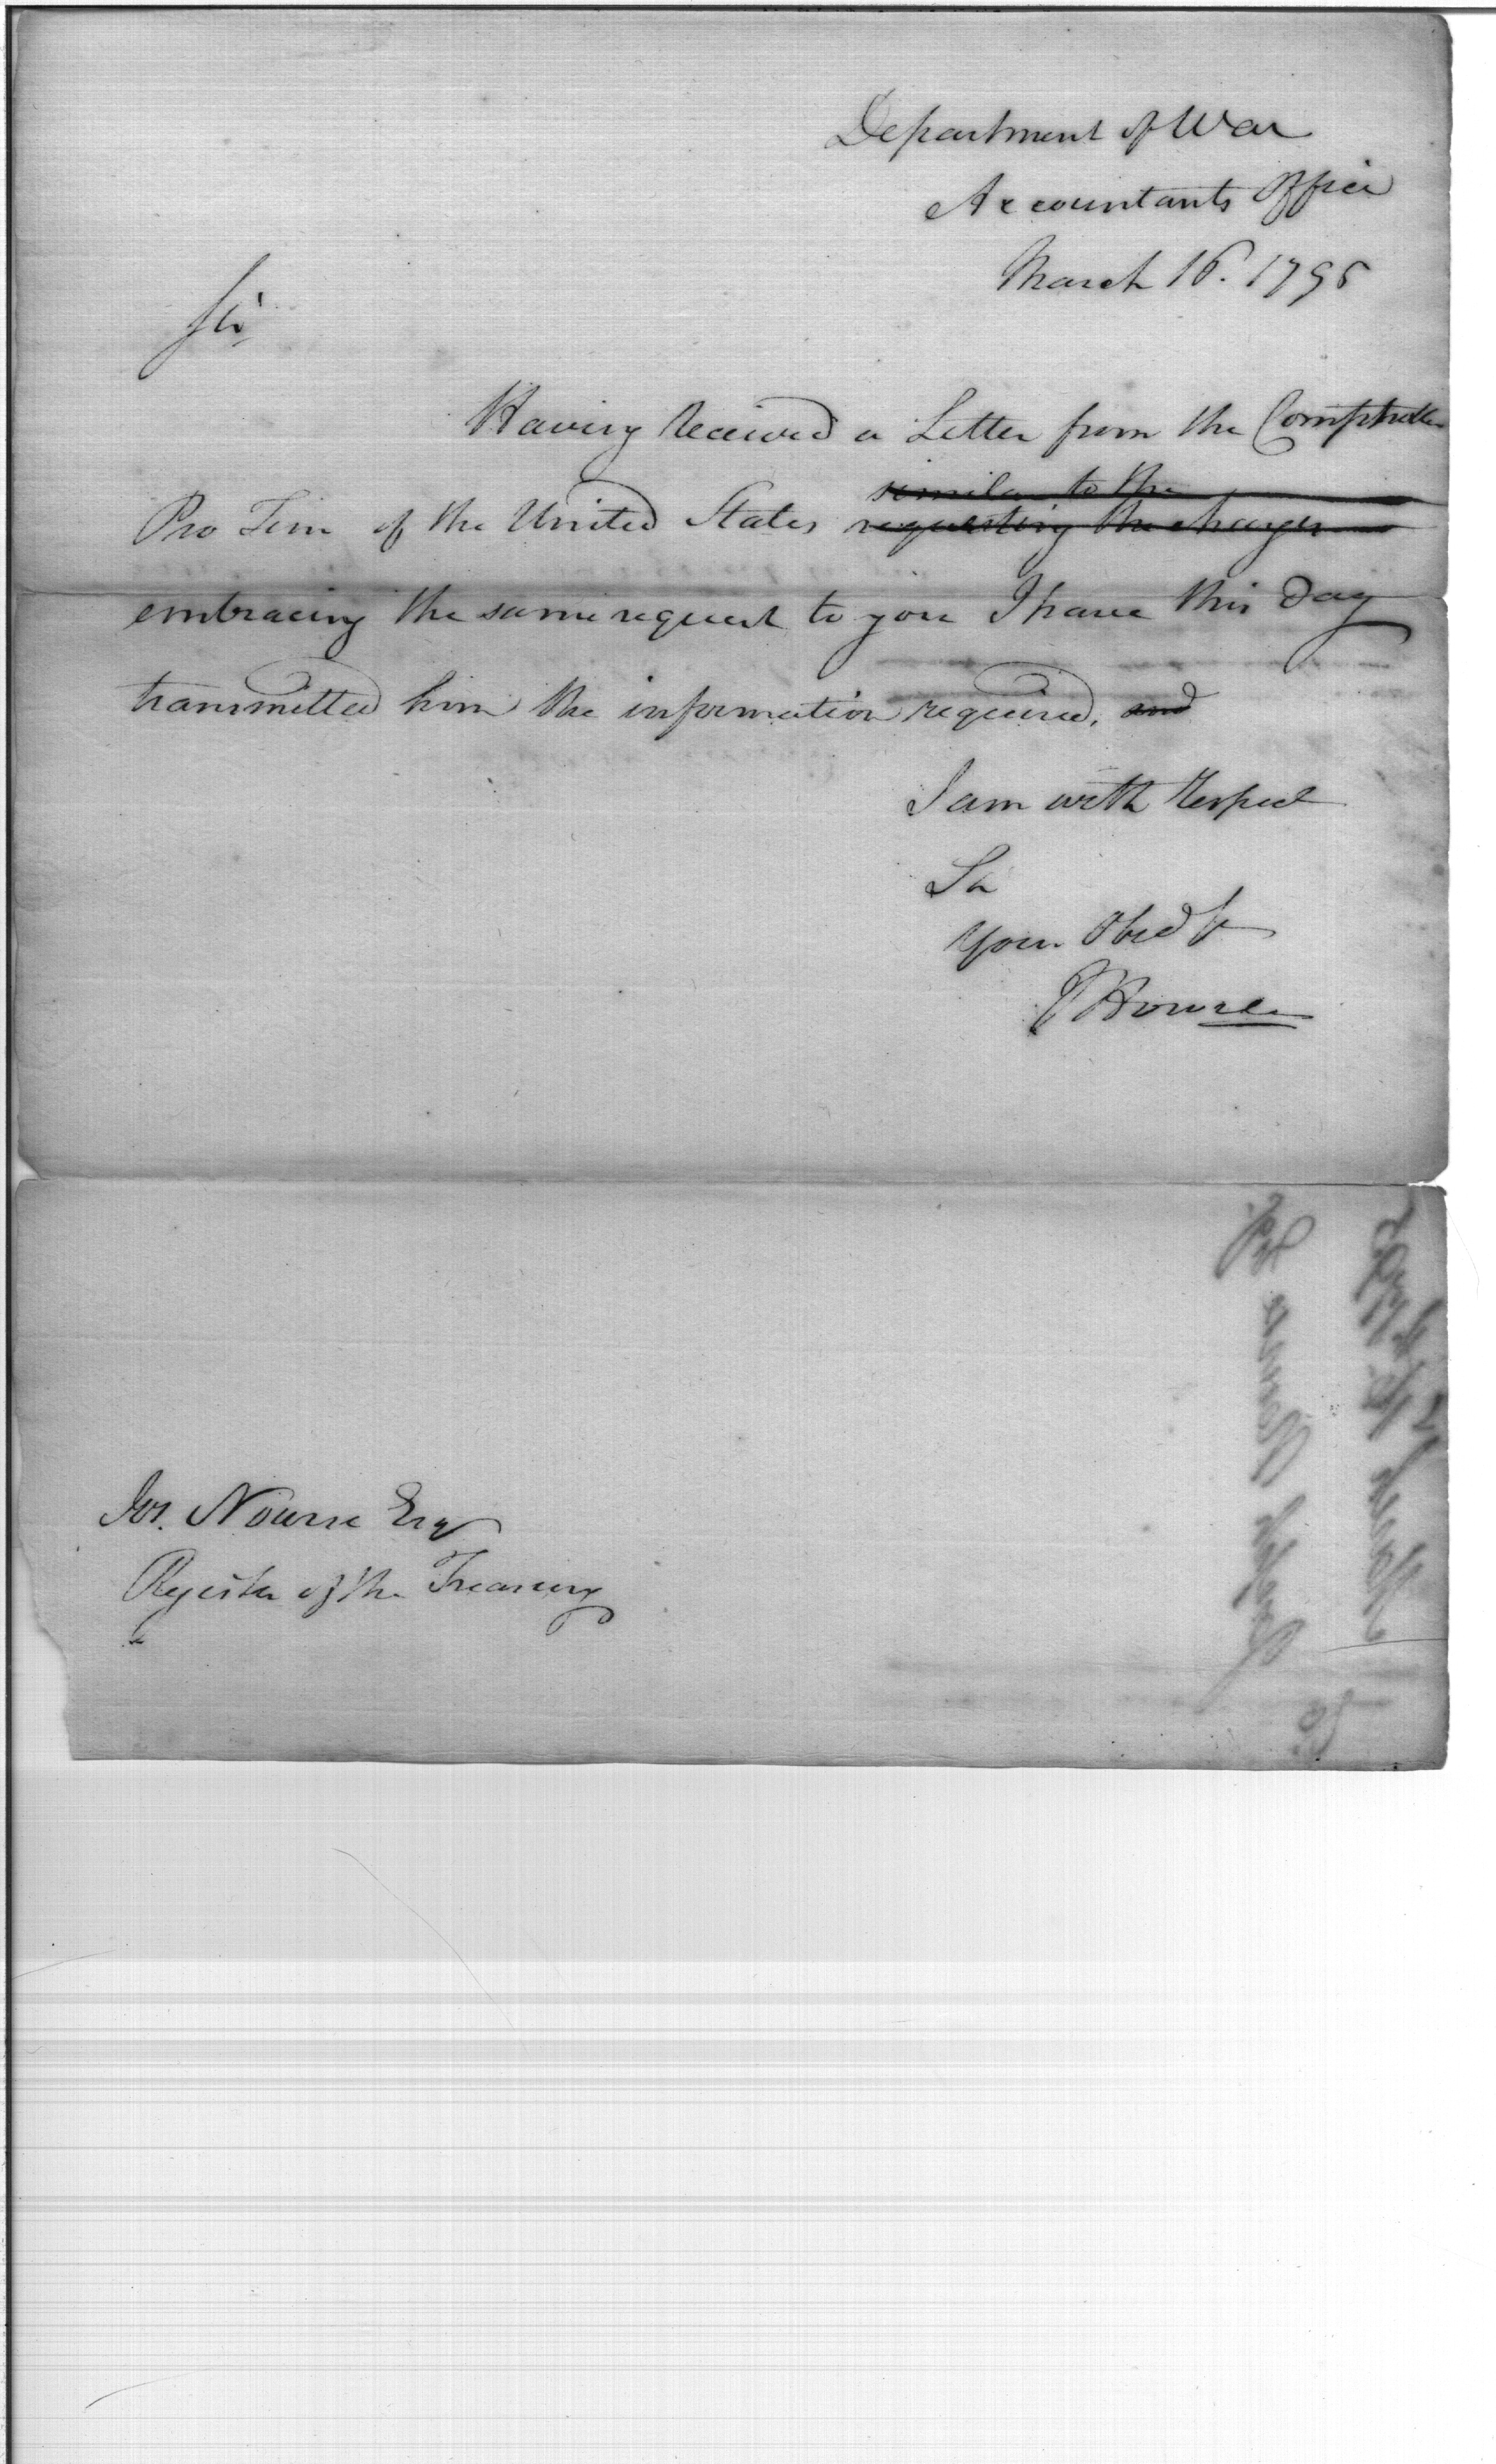 Department of War
Accountants Office
March 16. 1795
Sir
Having Received a Letter from the Comptroller
similar to the
Pro Tem of the United States requesting the charges
embracing the same request to you I have this Day
transmitted him the information required. and
I am with Respect
Sir
Your Obed St
J Howell
Jos. Nourse Esq
Register of the Treasury
To
Joseph Nourse Esq.
March 16 1795